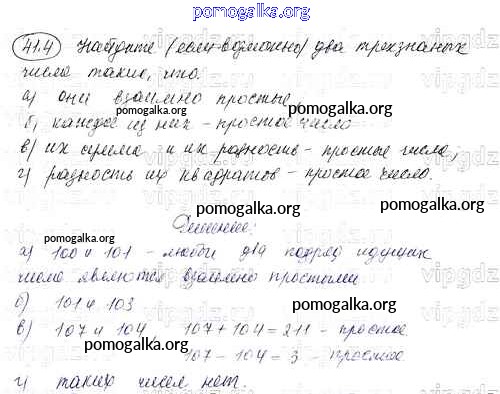 pomogalka.org
41.4 Найдите (если возможно) два трехзначных
числа такие, что:
а) они взаимно простые
pomogalka.org
б) каждое из них - простое число
pomogalka.org
в) их сумма и их разность - простые числа;
г) разность их квадратов - простое число.
pomogalka.org
Решение:
pomogalka.org
а) 100 и 101 - любы два подряд идущих
числа являются взаимно простыми
б) 101 и 103
pomogalka.org
в) 107 и 104, 107 + 104 = 211 - простое
pomogalka.org
107 - 104 = 3 - простое
г) таких чисел нет.
pomogalka.org